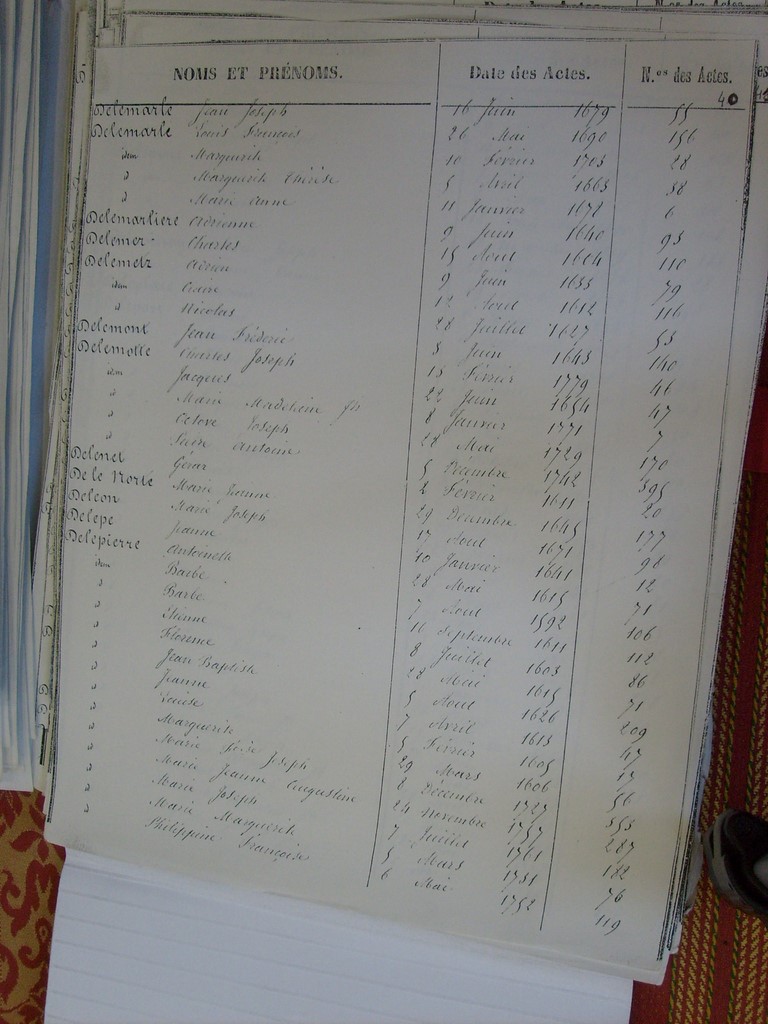 NOMS ET PRÉNOMS. Date des Actes. N.os des Actes.
40
Delemarle Jean Joseph 16 Juin 1679 55
Delemarle Louis François 26 Mai 1690 156
idem Marguerite 10 Février 1703 28
d Marguerite Thérèse 5 Avril 1663 38
d Marie Anne 11 Janvier 1678 6
Delemarliere Adrienne 9 Juin 1640 93
Delemer Charles 15 Aout 1604 110
Delemetz Adrien 9 Juin 1633 79
idem 12 Aout 1612 116
d Nicolas 28 Juillet 1627 53
Delemont Jean Fréderic 3 Juin 1643 140
Delemotte Charles Joseph 13 Février 1779 46
idem Jacques 22 Juin 1654 47
d Marie Madeleine 8 Janvier 1771 7
d Octove Joseph 28 Mai 1729 170
d Antoine 5 Décembre 1742 395
Delenet Gérar 2 Février 1611 20
De le Norte Marie Jeanne 29 Décembre 1645 177
Deleon Marie Joseph 17 Aout 1671 98
Delepe Jeanne 10 Janvier 1641 12
Delepierre Antoinette 28 Mai 1615 71
idem Barbe 7 Aout 1592 106
d Barbe 16 Septembre 1611 112
d Etienne 8 Juillet 1603 86
d Florence 28 Mai 1615 71
d Jean Baptiste 5 Aout 1626 209
d Jeanne 7 Avril 1613 47
d Louise 5 Février 1605 17
d Marguerite 29 Mars 1606 56
d Marie Joseph 8 Décembre 1727 353
d Marie Jeanne Augustine 24 Novembre 1757 287
d Marie Joseph 7 Juillet 1761 182
d Marie Marguerite 5 Mars 1731 76
d Philippine Françoise 6 Mai 1752 119